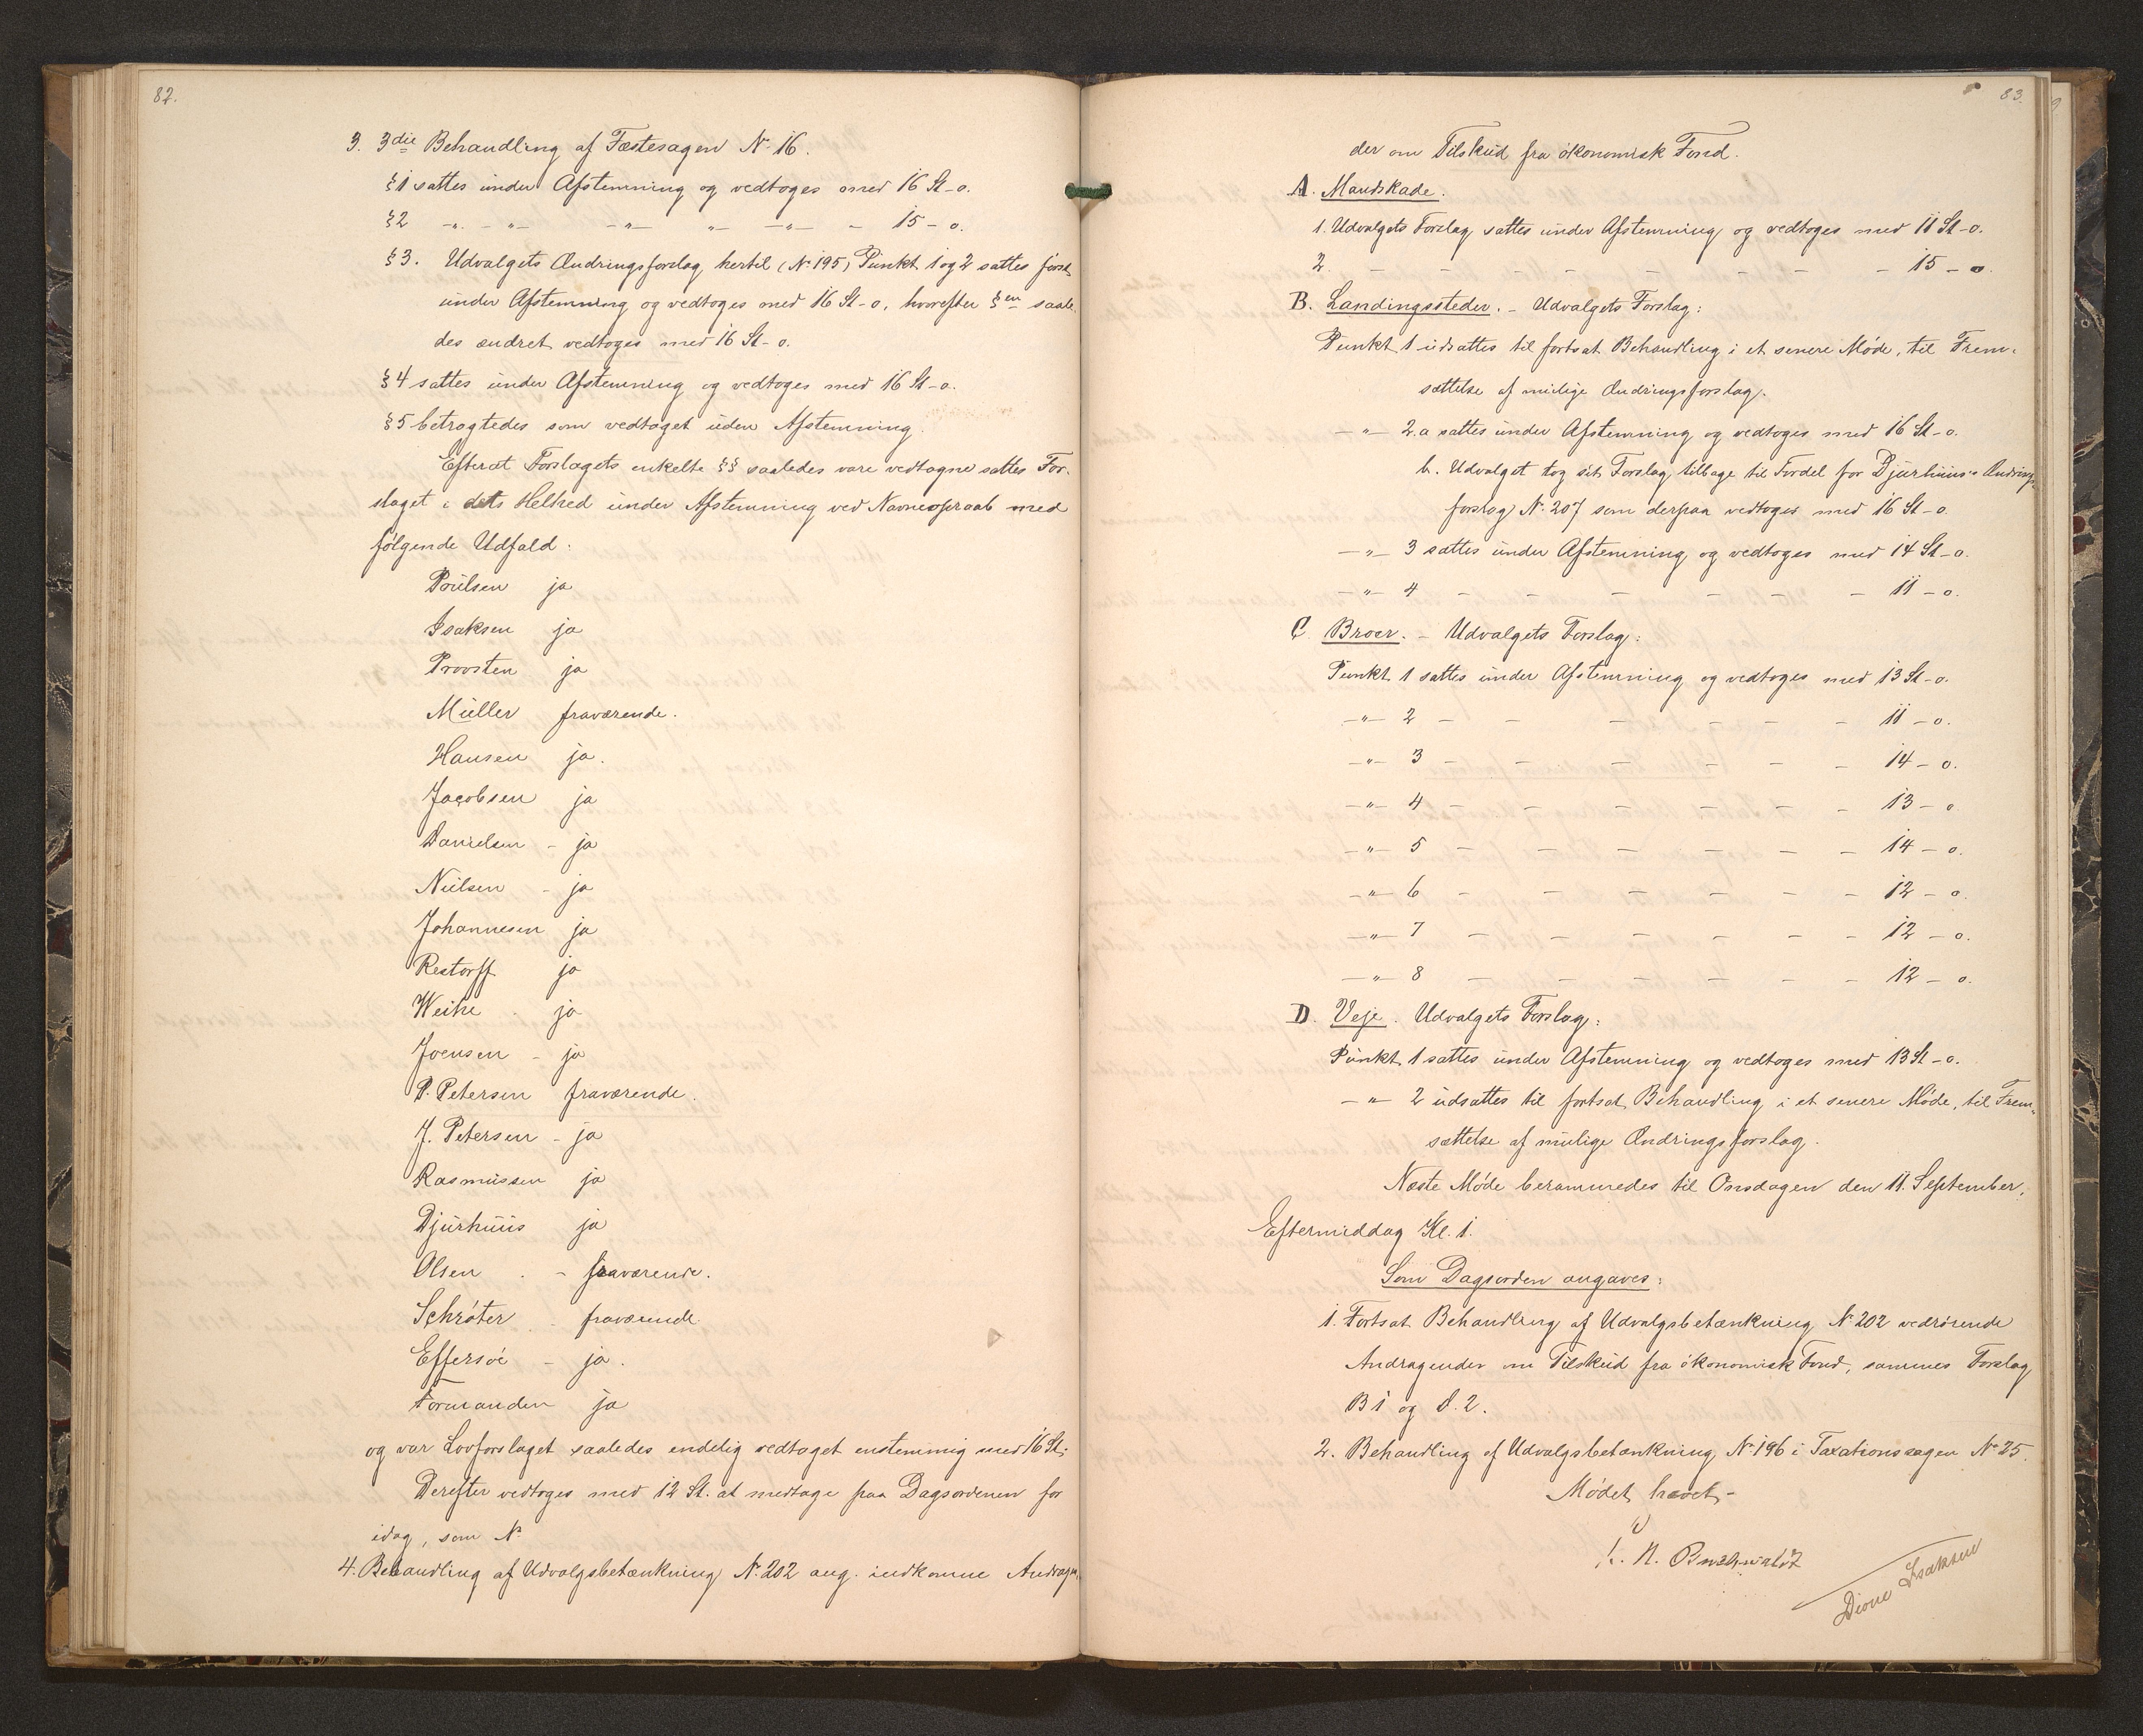 82.
3. 3die Behandling af Fæstesagen N. 16.
§1 sattes under Afstemning og vedtoges med 16 St-o.
§2 -"- -"- -"- "- -"- - 15 - o.
§3. Udvalgets Ændringsforslag hertil (N. 195) Punkt 1 og 2 sattes først
under Afstemning og vedtoges med 16 St-o, hvorefter §en saale-
des ændret vedtoges med 16 St-o.
§4 sattes under Afstemning og vedtoges med 16 St-o.
§5 betragtedes som vedtaget uden Afstemning.
Efterat Forslagets enkelte §§ saaledes vare vedtagne sattes For-
slaget i dets Helhed under Afstemning ved Navneopraab med
følgende Udfald:
Poulsen ja
Isaksen ja
Provsten ja
Müller fraværende.
Hansen ja.
Jacobsen ja
Danielsen - ja
Nielsen - ja
Johannesen ja
Restorff ja
Weihe - ja
Joensen - ja
P. Petersen fraværende.
J. Petersen - ja
Rasmussen ja
Djurhuus ja
Olsen - fraværende.
Schrøter - fraværende.
Effersøe - ja.
Formanden ja
og var Lovforslaget saaledes endelig vedtaget enstemmig med 16 St.
Derefter vedtoges med 12 St. at medtage paa Dagsordenen for
idag, som N.
4. Behandling af Udvalgsbetænkning N. 202 ang. indkomne Andragen-
83.
der om Tilskud fra økonomisk Fond.
A. Mandskade.
1. Udvalgets Forslag sattes under Afstemning og vedtoges med 11 St-o.
2. - - - - - - - - 15 - o.
B. Landingssteder. - Udvalgets Forslag:
Punkt 1 udsattes til fortsat Behandling i et senere Møde, til Frem-
sættelse af mulige Ændringsforslag.
-"- 2.a sattes under Afstemning og vedtoges med 16 St-o.
b. Udvalget tog sit Forslag tilbage til Fordel for Djurhuus's Ændrings-
forslag N. 207 som derpaa vedtoges med 16 St-o.
-"- 3 sattes under Afstemning og vedtoges med 14 St-o.
-"- 4 - - - - - - 11 - o.
C. Broer. - Udvalgets Forslag:
Punkt 1 sattes under Afstemning og vedtoges med 13 St-o.
-"- 2 - - - - - - 11 - o.
-"- 3 - - - - - - 14 - o.
-"- 4 - - - - - - 13 - o
-"- 5 - - - - - - 14 - o.
-"- 6 - - - - - - 12 - o.
-"- 7 - - - - - - 12 - o.
-"- 8 - - - - - - 12 - o.
D. Veje. Udvalgets Forslag:
Punkt 1 sattes under Afstemning og vedtoges med 13 St-o.
-"- 2 udsattes til fortsat Behandling i et senere Møde, til Frem-
sættelse af mulige Ændringsforslag.
Næste Møde berammedes til Onsdagen den 11. September,
Eftermiddag Kl. 1.
Som Dagsorden angaves:
1. Fortsat Behandling af Udvalgsbetænkning N. 202 vedrørende
Andragender om Tilskud fra økonomisk Fond, sammes Forslag
B 1 og D. 2.
2. Behandling af Udvalgsbetænkning N. 196 i Taxationssagen N. 25.
Mødet hævet.-
Dione Isaksen